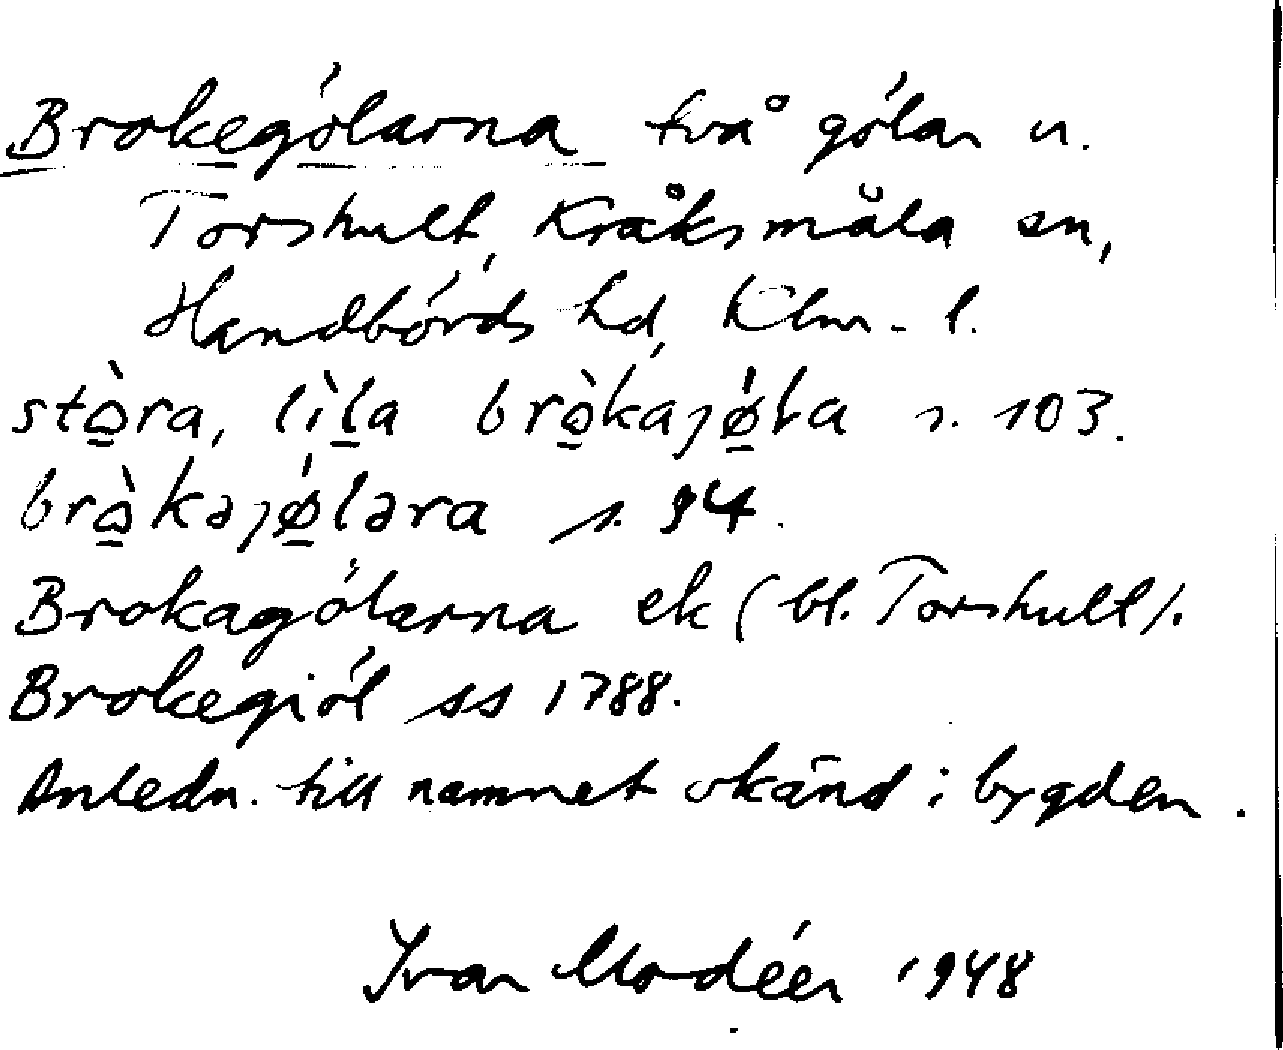 Brokegölarna två gölar u.
Torshult, Kråksmåla sn,
Handbörds hd, Klm. l.
stò̱ra, lìḻa brò̱kajǿ̱la s. 103.
brò̱kəjǿ̱ləra s. 94.
Brokagölarna ek (bl. Torshult).
Brokegiöl ss 1788.
Anledn. till namnet okänd i bygden.
Ivar Modéer 1948